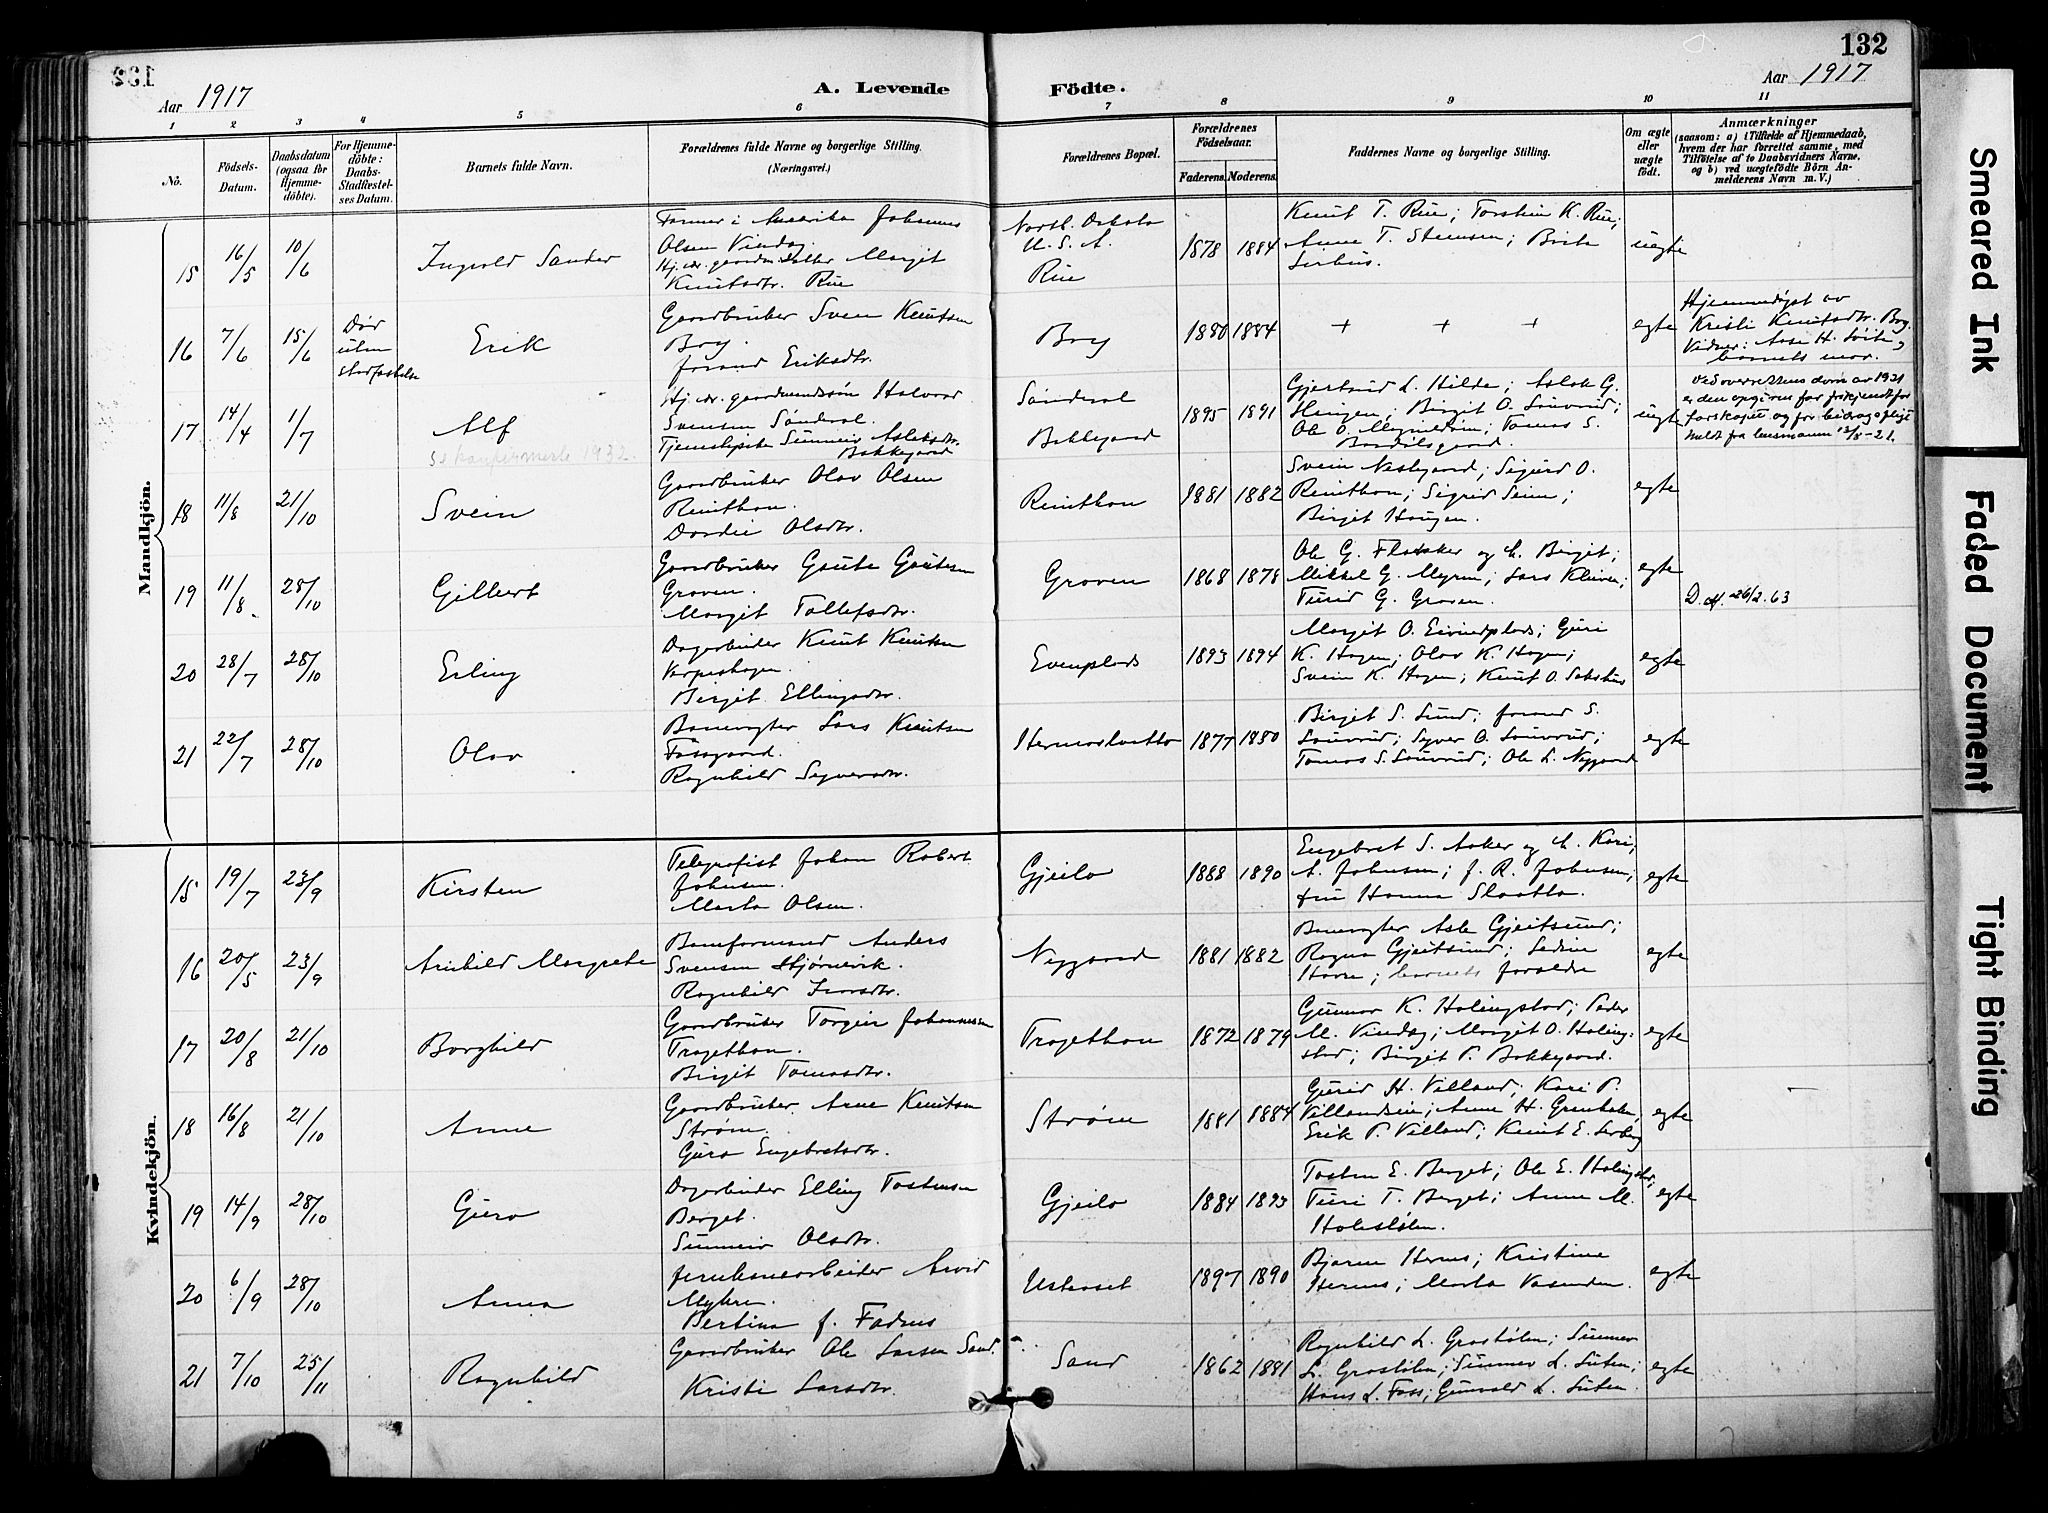 132
Aar 1917
A. Levende Födte.
Aar 1917
1 2 3 4 5 6 7 8 9 10 11
No.
Födsels-Datum.
Daabsdatum (ogsaa for Hjemmedöbte).
For Hjemmedöbte: Daabs-Stadfæstelses Datum.
Barnets fulde Navn.
Forældrenes fulde Navne og borgerlige Stilling. (Næringsvei.)
Forældrenes Bopæl.
Forældrenes Födselsaar.
Faderens. Moderens.
Faddernes Navne og borgerlige Stilling.
Om ægte eller uægte födt.
Anmærkninger
(saasom: a) i Tilfælde af Hjemmedaab, hvem der har forrettet samme, med Tilföielse af to Daabsvidners Navne, og b) ved uægtefödte Börn Anmelderens Navn m. V.)
Mandkjön.
15 16/5 10/6 Ingvald Sander
Farmer i Amerika Johannes
Olsen Vindag.
Hj. v. gaardm. datter Margit
Knutsdtr. Rue
North Dakota
U. S. A.
Rue
1878 1884
Knut T. Rue; Torstein K. Rue;
Anne T. Stensen; Brita
uegte
16 7/6 15/6 Død uten stadfæstelse
Erik
Gaardbruker Svein Knutsen
Bry.
Jorand Eriksdtr.
Bry
1880 1884
+ + +
egte
Hjemmedøpt av
Kristi Knutsdtr. Bry.
Vidner: Aase H.
barnets mor.
17 14/4 1/7 Alf
Se konfirmerte 1932.
Hj. v. gaardmandssøn Halvard
Svensen Sønderal.
Tjenestepike Sunneiv Aslaksdtr.
Bakkegaard
Sønderal
Bakkegaard
1895 1891
Gjertrud L. Hilde; Aslak G.
Haugen; Birgit O. Sauvrud;
Ole O. Tomas S.
uegte
Ved overrettens dom av 1921
er den opgivne far frikjendt for
farskapet og for bidragspligt
meldt fra lensmann 13/8-21.
18 11/8 21/10 Svein
Gaardbruker Olav Olsen
Reinthon.
Dordei Olsdtr.
Reinthon
1881 1882
Svein Nestegaard; Sigurd O.
Reinthon; Sigrid Seim;
Birgit Haugen.
egte
19 11/8 28/10 Gilbert
Gaardbruker Gaute Gautesen
Groven.
Margit Tollefsdtr.
Groven
1868 1878
Ole G. Flataker og h. Birgit;
Mikkel G. Myren; Lars Kleiven;
Turid G. Groven.
egte
D. att. 26/2.63
20 28/7 28/10 Erling
Dagarbeider Knut Knutsen
Verpeshagen.
Birgit Ellingsdtr.
Evenplads
1893 1894
Margit O. Eivindplads; Guri
K. Hagen; Olav K. Hagen;
Svein K. Hagen; Knut O.
egte
21 22/7 28/10 Olav
Banevogter Lars Knutsen
Fossgaard.
Ragnhild Syversdtr.
1877 1880
Birgit S. Lund; Jorand S.
Sauvrud; Syver O. Sauvrud;
Tomas S. Sauvrud; Ole L. Nygaard
egte
Kvindekjön.
15 19/7 23/9 Kirsten
Telegrafist Johan Robert
Johnsen.
Marta Olsen.
Gjeilo
1888 1890
Engebret S. Aaker og h. Kari;
A. Johnsen; J. R. Johnsen;
fru Hanna Slaatto.
egte
16 20/5 23/9 Arnhild Margrete
Baneformand Anders
Svensen Stjørnevik.
Ragnhild Ivarsdtr.
Nygaard
1881 1882
Banevogter Asle Gjeitsund;
Ragna Gjeitsund;
barnets forældre
egte
17 20/8 21/10 Borghild
Gaardbruker Torgeir Johannessen
Tragethon.
Birgit Tomasdtr.
Tragethon
1872 1879
Gunnar K. Holingstad; Peder
M. Vindag; Margit O. Holing-
stad; Birgit P. Bakkegaard.
egte
18 16/8 21/10 Anne
Gaardbruker Arne Knutsen
Strøm.
Guro Engebretsdtr.
Strøm
1881 1884
Gurid H. Villand; Kari P.
Anne H. Grønholen,
Erik P. Villand; Knut E.
egte
19 14/9 28/10 Guro
Dagarbeider Elling Tostensen
Berget.
Sunneiv Olsdtr.
Gjeilo
1884 1893
Tosten E. Berget; Ole E.
Turi T. Berget; Anne M.
egte
20 6/9 28/10 Anna
Jernbanearbeider Arvid
Myhre.
Bertina f. Fadnes
Ustaoset
1897 1890
Bjarne Herns; Kristine
Herns; Marta Vasenden.
egte
21 7/10 25/11 Ragnhild
Gaardbruker Ole Larsen Sand.
Kristi Larsdtr.
Sand
1862 1881
Ragnhild L. Grøstølen; Sunnev
L. Grøstølen; Sunnev L. Luten;
Hans L. Foss; Gunvald L. Luten.
egte
Smeared Ink
Faded Document
Tight Binding